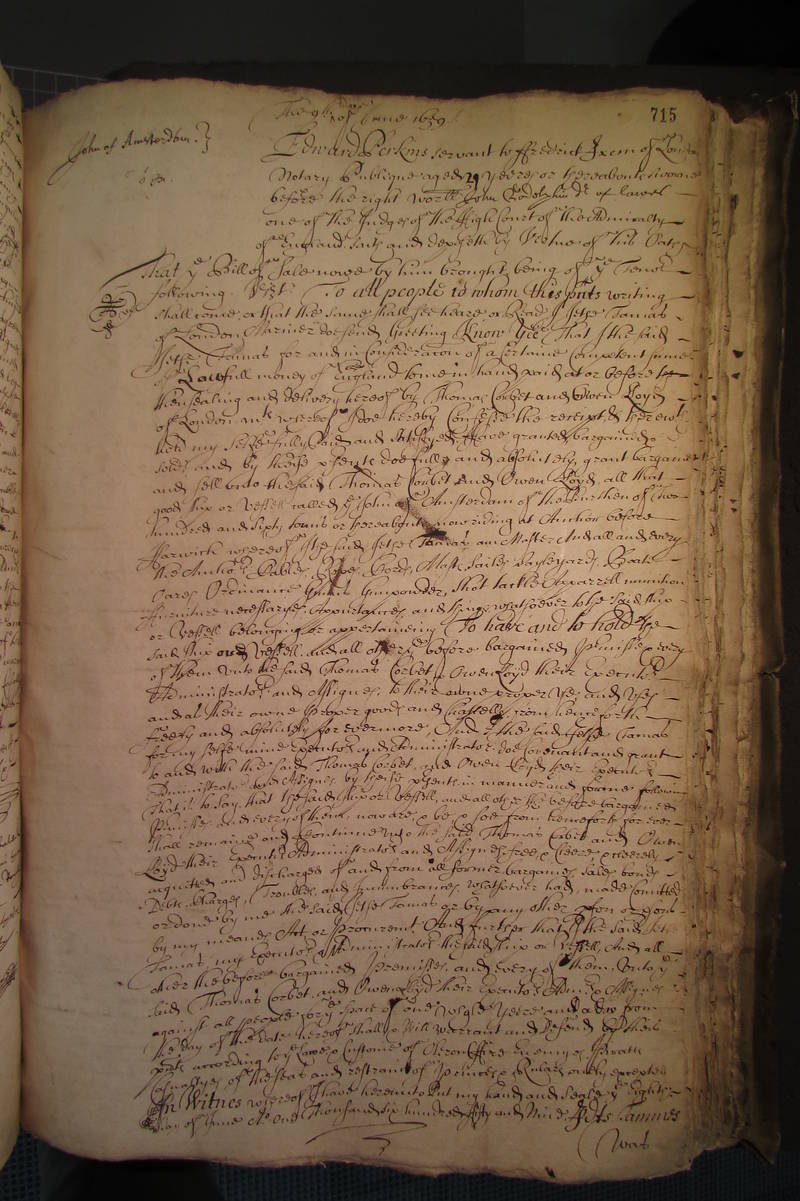 The 9th day of June 1659.
715
John of Amsterdam.
Edward Perkins servant to ffrederick Ixem of London
Notary Publique aged 29 yeeres or thereabouts sworne
before the right worll John Godolphin Dr of lawes
one of the Judges of the High Court of the Admiralty
of England saith and deposeth by Vertue of his Oath
That ye Bill of Sale nowe by him brought, being of ye Tenor
following. Vizt. To all people to whom this pnts writing
shall come, or that the same shall see heare or Read I Jetse Tamas
of London Marriner doe send Greeting Know Yee That I the said
Jetse Tamas for and in Consideracon of a Certaine Competent summe
of Lawfull money of England to me in hand paid at or before the
thensealing and delivery hereof by Thomas Corbet and Owen Lloyd
of London whereof I doe hereby Confesse the receipt, &
my selfe fully paid and satisfyed, Have granted, bargained
sold, and by these psents doe fully and absolutely, grant bargaine
and sell unto the said Thomas Corbet and Owen Lloyd, all that
good ship or Vessell called ye John of Amsterdam of the Burthen of two
hundred and sixty tonns or thereabouts, now riding at Anchor before
Harwich whereof I the said Jetse Tamas am Master And all and every
the Anchors Cables, Ropes, Cords, Masts Sailes Sayleyards, Boate
Oares Ordinance Gunns Gunpowder, shot tackle Apparrell munition
furniture necessaryes Appurtances and things whatsoever to the said ship
or Vessell belonging or appertaineing To have and to hold the
said ship or Vessell and all other ye before bargained premisses & every
of them unto the said Thomas Corbet & Owen Lloyd their Executors
Administrators and Assignes, to their owne proper Use and Uses
and as their owne proper goods and Chattells from henceforth
freely and absolutely for evermore, And I the said Jetse Tamas
for my selfe mine Executors and Administrators doe Covenant and grant
to and with the said Thomas Corbet, and Owen Lloyd their Executors
Administrators and Assignes by these psents in manner and forme following
That is to Say, that the said ship or Vessell, and all other the before bargained
premisses and every of them, now are & be & soe from henceforth for ever
shall remaine and Continue unto the said Thomas Corbet and Owen
Lloyd their Executors Administrators and Assignes, free & cleere, & cleerely
acquitted and discharged of and from all former bargaines sales bonds
Debts Charges, Troubles, and incumbrances whatsoever had, made comitted
or done by me the said Jetse Tamas or by any other pson or psons
by my meanes Act, or procurement. And further that I the said Jetse
Tamas, my Executors & Administrators the said ship or Vessell, and all
other the before bargained premisses, and every of them, unto ye
said Thomas Corbet, and Owen Lloyd their Executors Admrs & Assignes
against all people for ye space of one whole Yeere and a day from
the day of the date hereof shall & Will warrant and Defend by these
psents according to ye Lawes & Customes of Oleron ffire Enemyes Piratts
of the seas and restraint of princes & Rulers onely excepted
In Witnes whereof I have hereunto Put my hand and Seale ye Eighth
day of June one Thousand six hundred fifty and nine. Jets Tammes
was